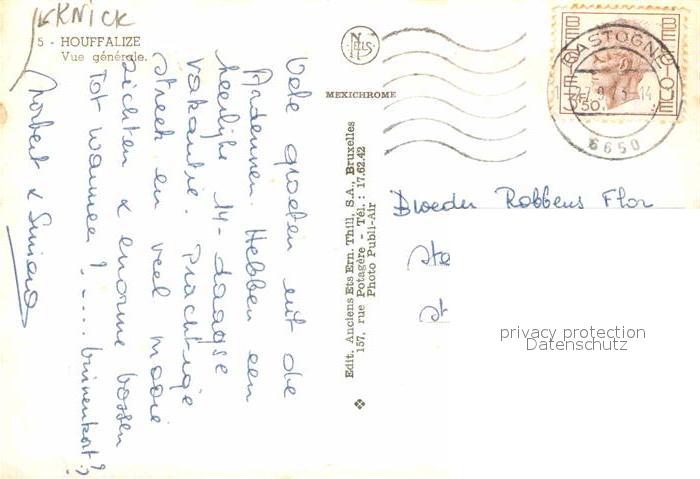 KNICK
5 - HOUFFALIZE
Vue générale.
Vele groeten uit de
Ardennen. Hebben een
heerlijke 14-daagse
vakantie. Prachtige
streek en veel mooie
zichten & enorme bossen
Tot wanneer? .... binnenkort?
Norbert &
NELS
MEXICHROME
Edit. Anciens Ets Ern. Thill, S.A., Bruxelles
157, rue Potagère - Tél. : 17.62.42
Photo Publi-Air
BASTOGNE
6650
BELGIE BELGIQUE
3F50
Broeder Robbens Flor
Ste
st
privacy protection
Datenschutz